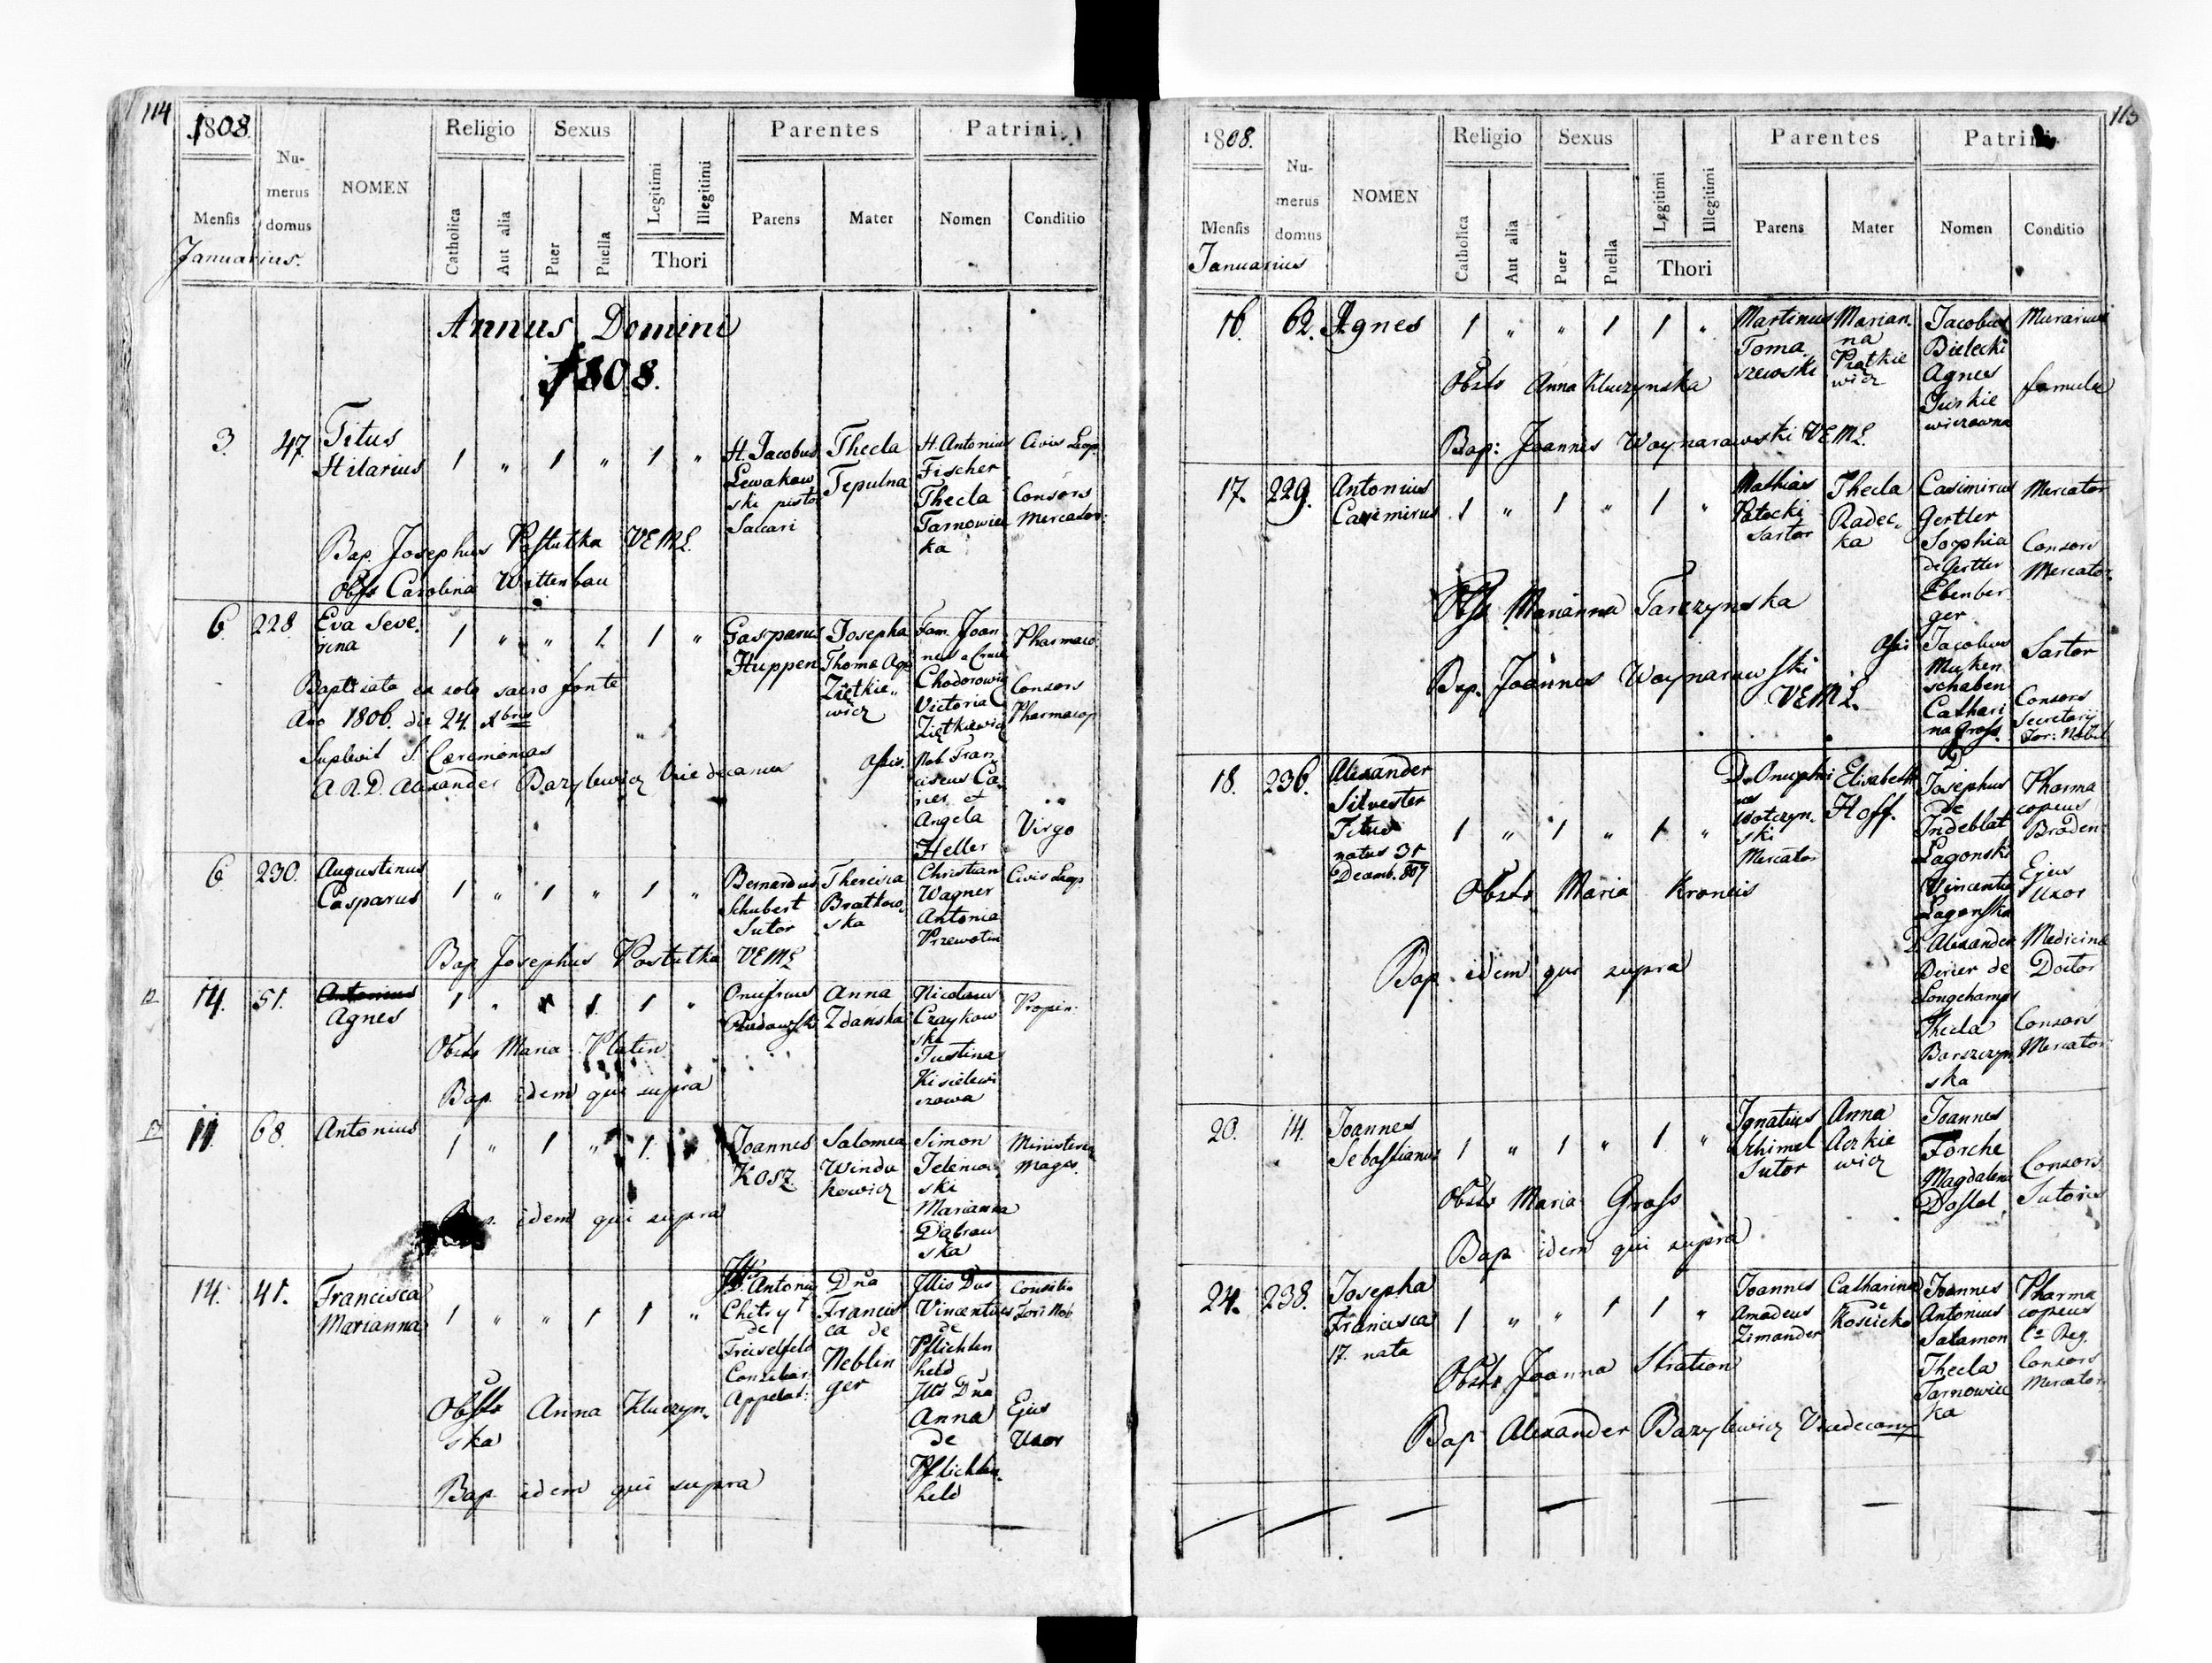 114
1808.
Numerus domus
NOMEN
Religio
Sexus
Legitimi
Illegitimi
Parentes
Patrini
Mensis
Catholica
Aut alia
Puer
Puella
Thori
Parens
Mater
Nomen
Conditio
Januarius.
Annus Domini
1808.
3. 47. Titus Hilarius 1 " 1 " 1 "
H. Jacobus Lewakowski pistor Saccari
Thecla Tepulna
H. Antonius Fischer
Civis Leop.
Thecla Tarnowiecka
Consors Mercator:
Bap. Josephus Pastutka VEML.
Obsts Carolina Wittenbau
6. 228. Eva Severina 1 " " 1 1 "
Gasparus Huppen
Josepha Thoma Ags Ziętkiewicz
Fam. Joannes a Cruce Chodorowicz
Pharmaco.
Victoria Ziętkiewicz
Consors Pharmacop
Baptisata ex solo sacro fonte
Ano 1806. die 24. Xbris
Suplevit S. Cæremonias
A. R. D. Alexander Bazylewicz Vice decanus
Assis.
Nob Franciscus Ca
nes et
Angela Heller
Virgo
6. 230. Augustinus Casparus 1 " 1 " 1 "
Bernardus Schubert Sutor
Theresia Bratkowska
Christian Wagner
Civis Leop.
Antonia Przewotin
Bap Josephus Pastutka VEML
12 14. 51. Antonius
Agnes 1 " 1 1 "
Onufrius Rudawski
Anna Zdanska
Nicolaus Czaykowski
Propin:
Justina Kisielewiczowa
Obsts Maria Platin
Bap. idem qui supra
13 11. 68. Antonius 1 " 1 " 1
Joannes Kosz.
Salomea Windakewicz
Simon Jeleniowski
Ministeria Magis.
Marianna Dąbrowska
idem qui supra
14. 41. Francisca Marianna 1 " " 1 1 "
D. Antonius Chitry de Freiselfeld Consiliar: Appelat:
Dna Francisca de Neblinger
Illis Dus Vincentius de Pflichtenheld
Consilia Fori Nob
Dna Anna de Pflichtenheld
Ejus Uxor
Obssts Anna Kluczynska
Bap. idem qui supra
115
1808.
Numerus domus
NOMEN
Religio
Sexus
Legitimi
Illegitimi
Parentes
Patrini
Mensis
Catholica
Aut alia
Puer
Puella
Thori
Parens
Mater
Nomen
Conditio
Januarius
16. 62. Agnes 1 " " 1 1 "
Martinus Tomaszewski
Marianna Piątkiewicz
Jacobus Bielecki
Murarius
Agnes Jurkiewiczowna
famula
Obsts Anna Kluczynska
Bap: Joannes Woynarowski VEML.
17. 229. Antonius Casimirus 1 " 1 " 1 "
Mathias Patocki Sartor
Thecla Radecka
Casimirus Gertler
Mercator
Sophia de Gertler Ebenberger
Consors Mercator.
Obsts Marianna Tarczynska
Assis
Jacobus Mukenschaben
Sartor
Catharina Gross.
Consors Secretarij For: Nobil
Bap. Joannes Woynarowski VEML.
18. 236. Alexander Silvester Titus natus 31 Decemb. 807 1 " 1 " 1 "
D. Onuphrius Wotczynski Mercator
Elisabeth Hoff.
D Josephus de Indeblat Lagonski
Pharmacopeus Broden:
Vincentia Lagonska
Ejus Uxor
Obsts Maria Kroneis
D. Alexander Berier de Longchamps
Medicina Doctor
Bap. idem qui supra
Thecla Barszczynska
Consors Mercator:
20. 14. Joannes Sebastianus 1 " 1 " 1 "
Ignatius Schimel Sutor
Anna Aczkiewicz
Joannes Forche
Magdalena Dostal
Consors Sutoris
Obsts Maria Gross
Bap idem qui supra
24. 238. Josepha Francisca 17. nata 1 " " 1 1 "
Joannes Amadeus Zimander
Catharina de Kosicka
Joannes Antonius Salamon
Pharmacopeus Co Reg.
Thecla Tarnowiecka
Consors Mercator.
Obsts Joanna Stration
Bap Alexander Bazylewicz Vicedecany